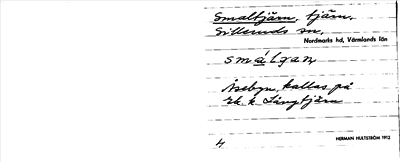 Smaltjärn, tjärn.
Silleruds sn,
Nordmarks hd, Värmlands län
smálgan
Åsebyn, kallas på
ek. k Långtjärn
4
HERMAN HULTSTRÖM 1912